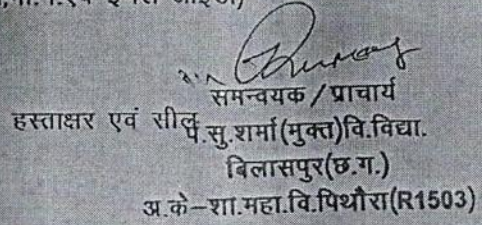 समन्वयक / प्राचार्य
हस्ताक्षर एवं सील पं.सु.शर्मा(मुक्त)वि.विद्या.
बिलासपुर(छ.ग.)
अ.के–शा.महा.वि.पिथौरा(R1503)